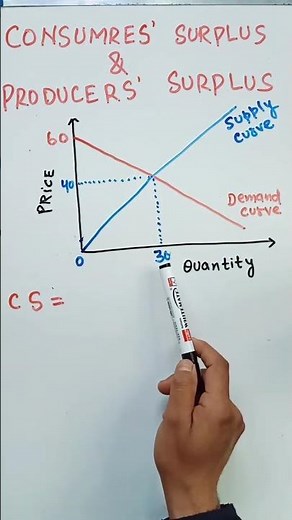 CONSUMRES' SURPLUS
&
PRODUCERS' SURPLUS
Supply
curve
60
PRICE
40
Demand
curve
0
30
Quantity
CS =